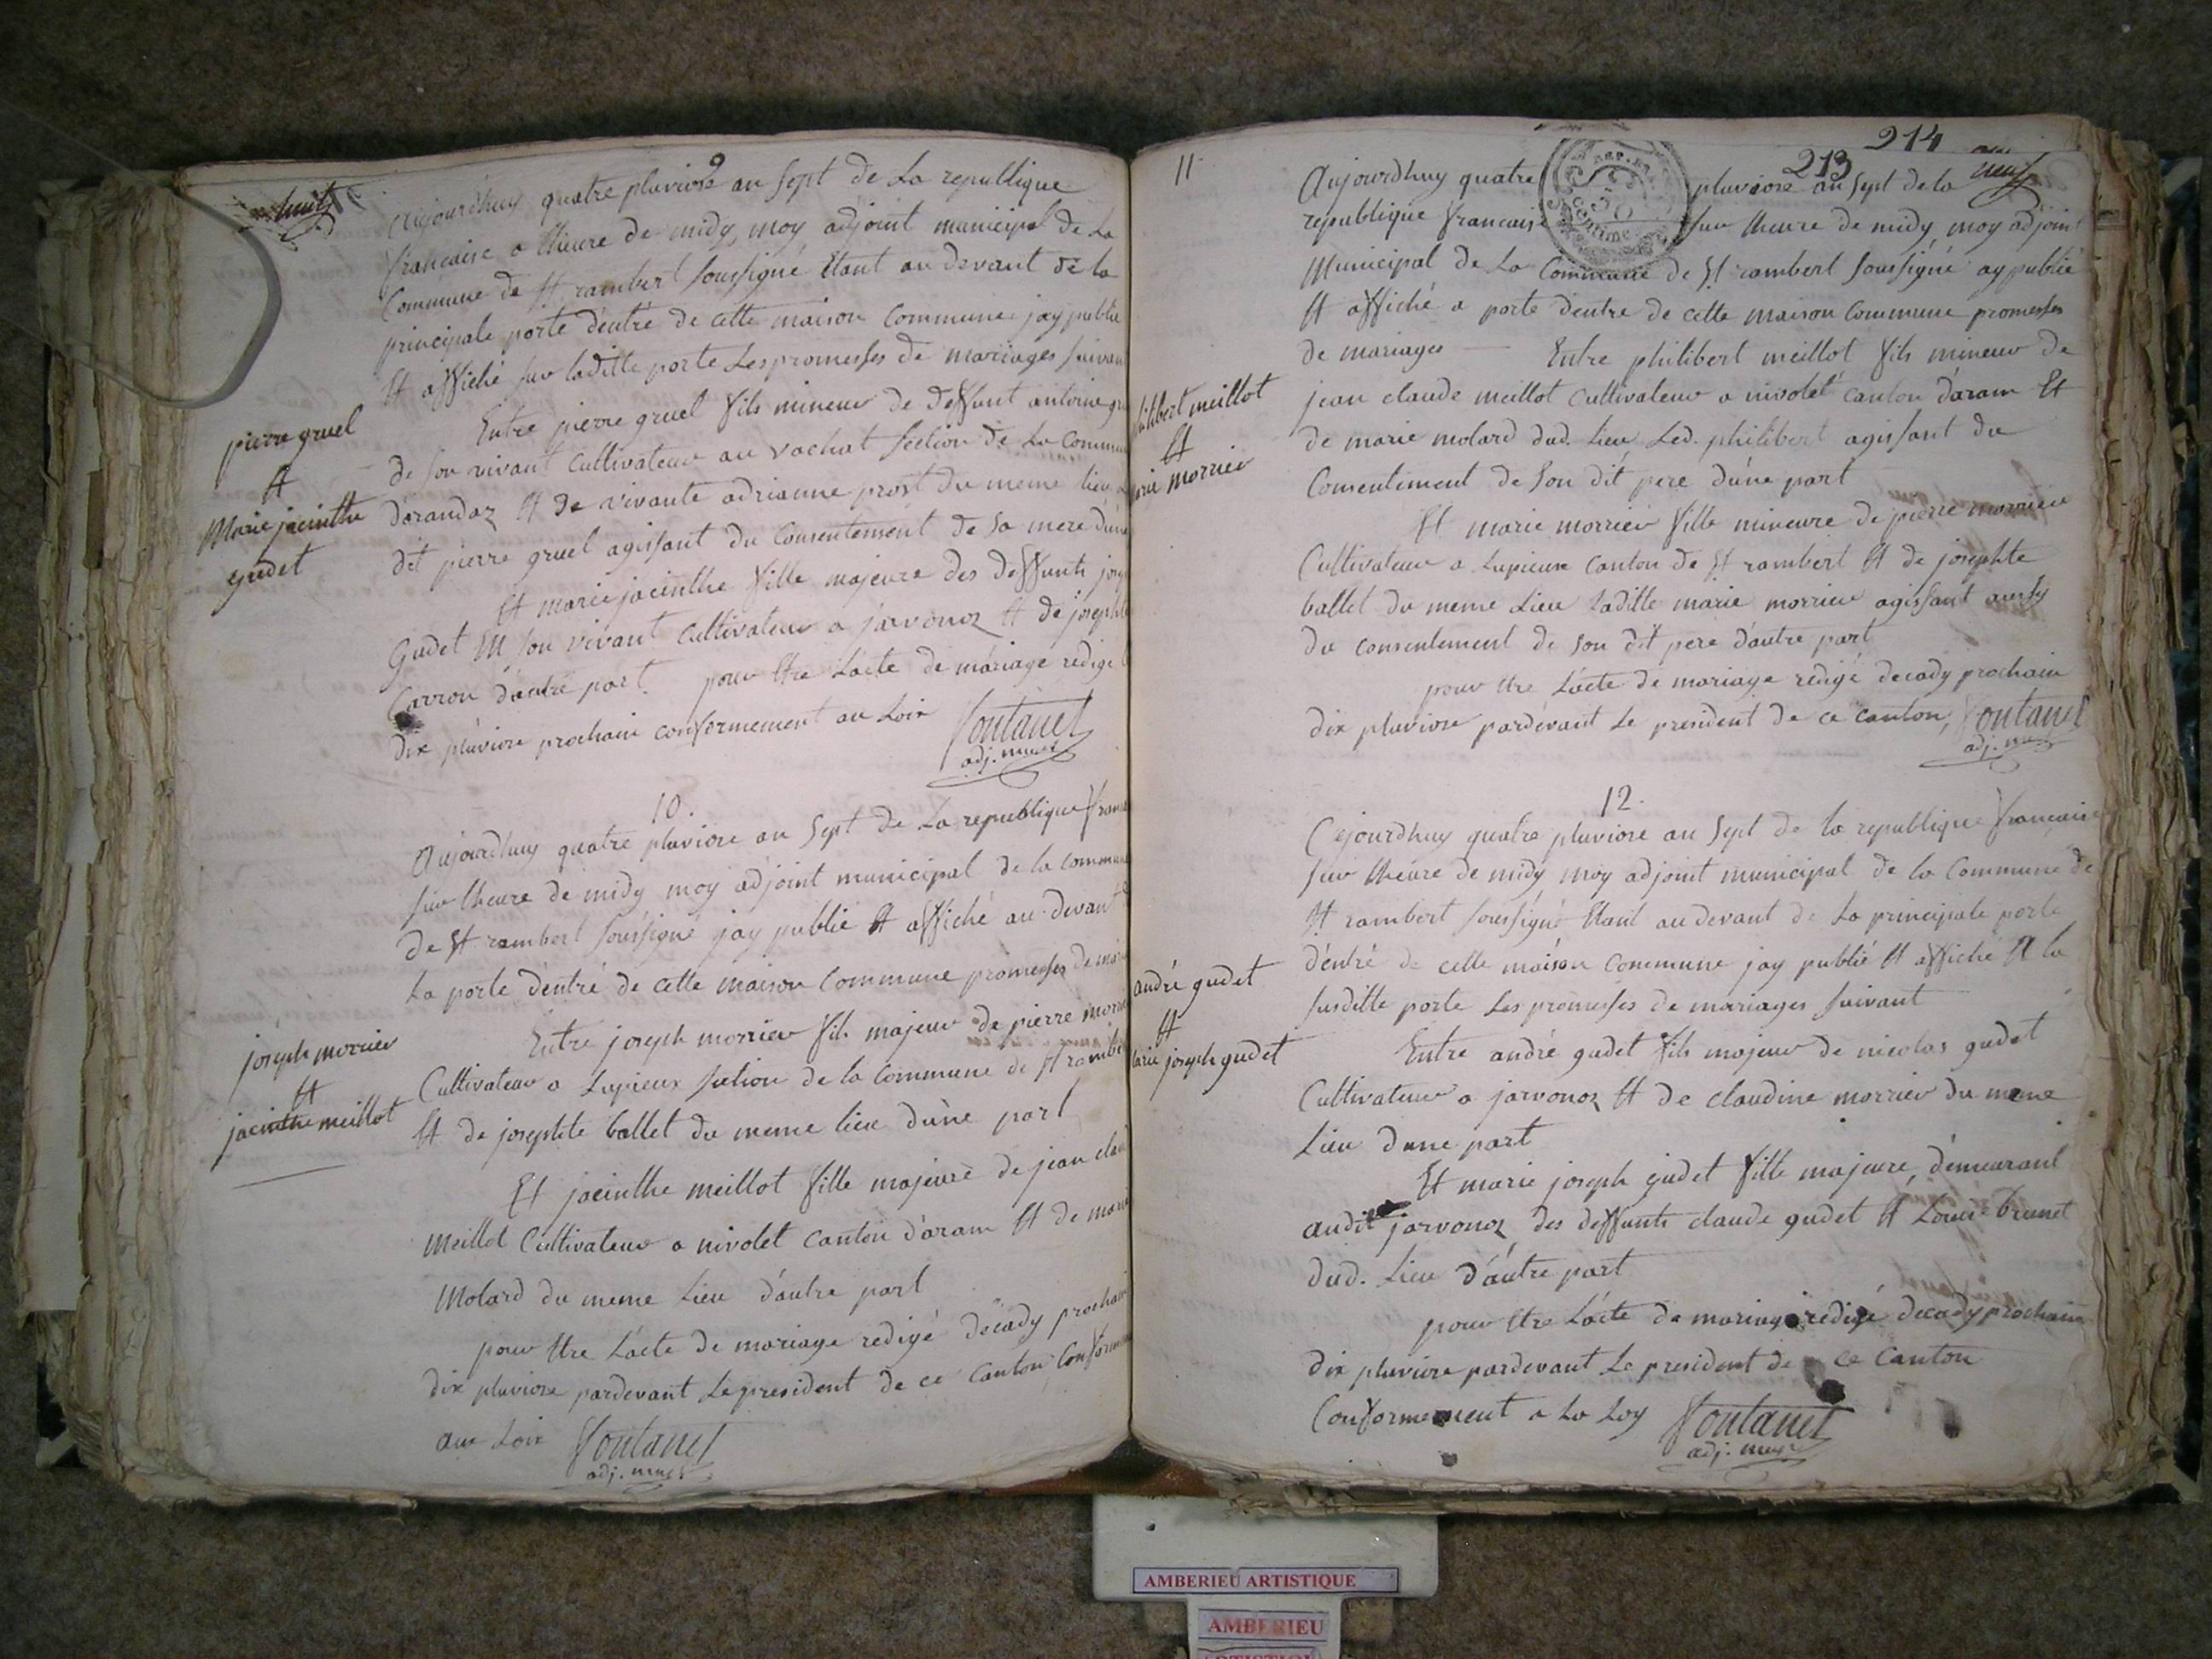 huit
9
aujourdhuy quatre pluviose an sept de la republique
francaise a lheure de midy, moy adjoint municipal de la
Commune de St rambert soussigné Etant au devant de la
principale porte dentré de cette maison Commune jay publié
Et affiché sur laditte porte les promesses de mariages suivan
pierre gruel
Et
Marie jacinthe
gudet
Entre pierre gruel fils mineur de deffunt antoine gru
de son vivant Cultivateur au vachat section de la Commun
d'arandaz Et de vivante adrianne prost du meme lieu
dit pierre gruel agissant du Consentement de sa mere d'une
Et marie jacinthe fille majeure des deffunts jose
Gudet En son vivant Cultivateur a jarvonoz Et de josephte
Carron d'autre part pour Etre l'acte de mariage redigé
dix pluviose prochain conformement au loix
fontanel
adj. mun
10.
Aujourdhuy quatre pluviose an sept de la republique franc
sur lheure de midy moy adjoint municipal de la commune
de St rambert soussigné jay publié Et affiché au devant
la porte dentré de cette maison Commune promesses de mar
joseph morrier
Et
jacinthe meillot
Entre joseph morrier fils majeur de pierre morrie
Cultivateur a Lupieux section de la Commune de St rambe
Et de josephte ballet du meme lieu d'une part
Et jacinthe meillot fille majeure de jean clau
Meillot Cultivateur a nivolet canton d'aram Et de marie
Molard du meme Lieu d'autre part
pour Etre l'acte de mariage redigé decady prochain
dix pluviose pardevant le president de ce Canton Conforme
aux Loix
fontanel
adj. mun
214
213
neuf
11
Aujourdhuy quatre pluviose an sept de la
republique francaise sur lheure de midy, moy adjoint
Municipal de la Commune de St rambert soussigné ay publié
Et affiché a porte dentre de cette maison Commune promesses
de mariages
hilibert meillot
Et
arie morrier
Entre philibert meillot fils mineur de
jean claude meillot Cultivateur a nivolet canton d'aram Et
de marie molard dud. Lieu, led. philibert agissant du
Consentement de son dit pere d'une part
Et marie morrier fille mineure de pierre morrier
Cultivateur a Lupieux Canton de St rambert Et de josephte
ballet du meme Lieu laditte marie morrier agissant aussy
du consentement de son dit pere d'autre part
pour Etre l'acte de mariage redigé decady prochain
dix pluviose pardevant le president de ce canton,
fontanel
adj. mun
12.
Cejourdhuy quatre pluviose an sept de la republique francaise
sur lheure de midy, moy adjoint municipal de la Commune de
St rambert soussigné Etant au devant de la principale porte
d'entré de cette maison Commune jay publié Et affiché A la
susditte porte les promesses de mariages suivant
andré gudet
Et
arie joseph gudet
Entre andré gudet fils majeur de nicolas gudet
Cultivateur a jarvonoz Et de claudine morrier du meme
Lieu dune part
Et marie joseph gudet fille majeure, demeurant
audit jarvonoz, des deffunts claude gudet Et Louise brunet
dud. Lieu d'autre part
pour Etre l'acte de mariage redigé decady prochain
dix pluviose pardevant le president de ce Canton
Conformement a la Loy
fontanel
adj. mun
AMBERIEU ARTISTIQUE
AMBERIEU
ARTISTIQUE